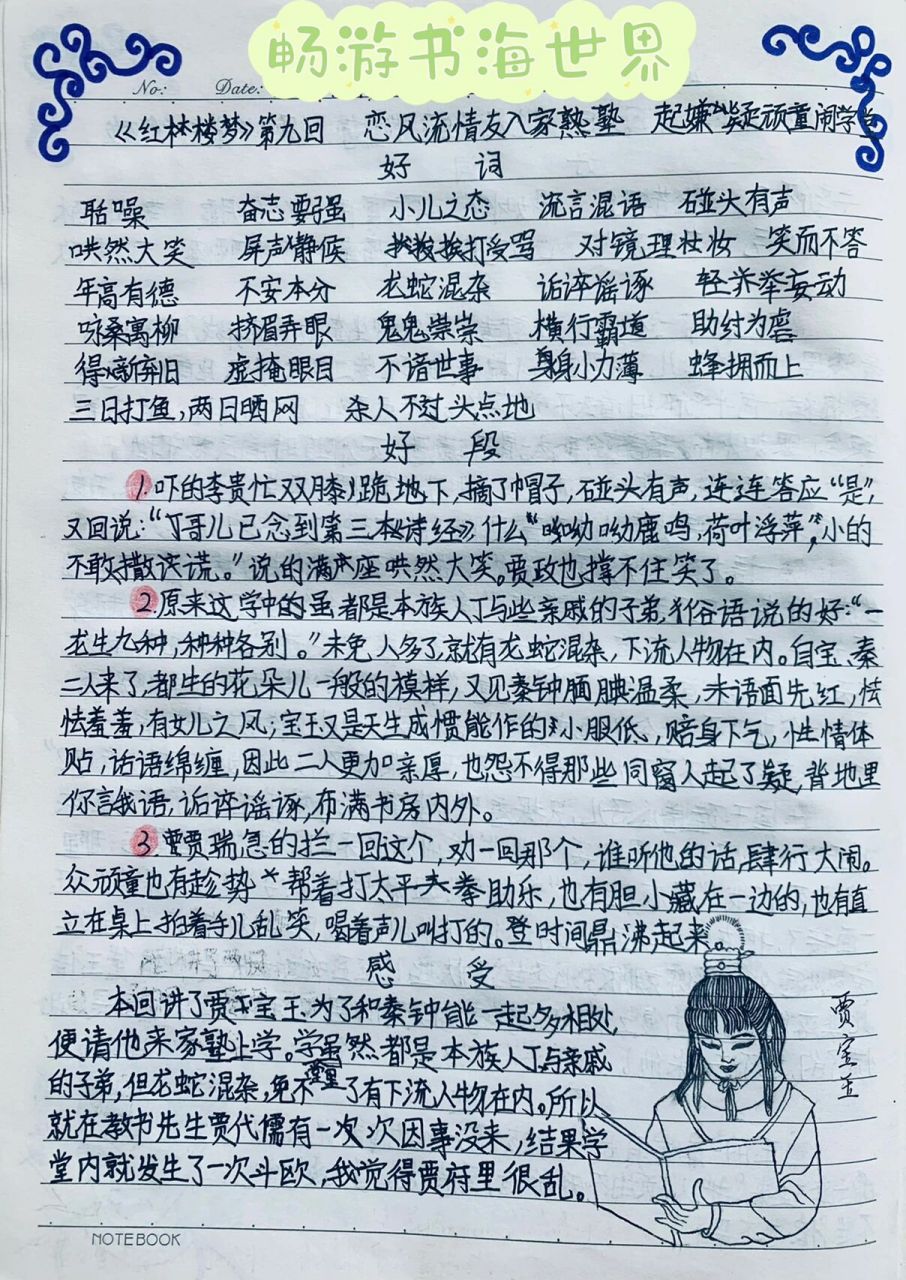 畅游书海世界
No: Date:
《红楼梦》第九回 恋风流情友入家塾 起嫌疑顽童闹学堂
好 词
聒噪 奋志要强 小儿之态 流言混语 碰头有声
哄然大笑 屏声静候 挨打受骂 对镜理妆 笑而不答
年高有德 不安本分 龙蛇混杂 诟谇谣诼 轻举妄动
咏桑寓柳 挤眉弄眼 鬼鬼祟祟 横行霸道 助纣为虐
得新弃旧 虚掩眼目 不谙世事 身小力薄 蜂拥而上
三日打鱼,两日晒网 杀人不过头点地
好 段
1.吓的李贵忙双膝跪地下,摘了帽子,碰头有声,连连答应“是”,
又回说:“哥儿已念到第三本《诗经》,什么“呦呦鹿鸣,荷叶浮萍”,小的
不敢撒谎。”说的满座哄然大笑。贾政也撑不住笑了。
2.原来这学中的虽都是本族人丁与些亲戚的子弟,俗语说的好:“一
龙生九种,种种各别。”未免人多了,就有龙蛇混杂,下流人物在内。自宝、秦
二人来了,都生的花朵儿一般的模样,又见秦钟腼腆温柔,未语面先红,怯
怯羞羞,有女儿之风;宝玉又是天生成惯能作的小服低,赔身下气,性情体
贴,话语绵缠,因此二人更加亲厚,也怨不得那些同窗人起了疑,背地里
你言我语,诟谇谣诼,布满书房内外。
3.贾瑞急的拦一回这个,劝一回那个,谁听他的话,肆行大闹。
众顽童也有趁势帮着打太平拳助乐,也有胆小藏在一边的,也有直
立在桌上拍着手儿乱笑,喝着声儿叫打的。登时间鼎沸起来。
感 受
本回讲了贾宝玉为了和秦钟能一起多相处,
便请他来家塾上学。学虽然都是本族人丁与亲戚
的子弟,但龙蛇混杂,免不了有下流人物在内。所以
就在教书先生贾代儒有一次次因事没来,结果学
堂内就发生了一次斗欧,我觉得贾府里很乱。
贾宝玉
NOTEBOOK